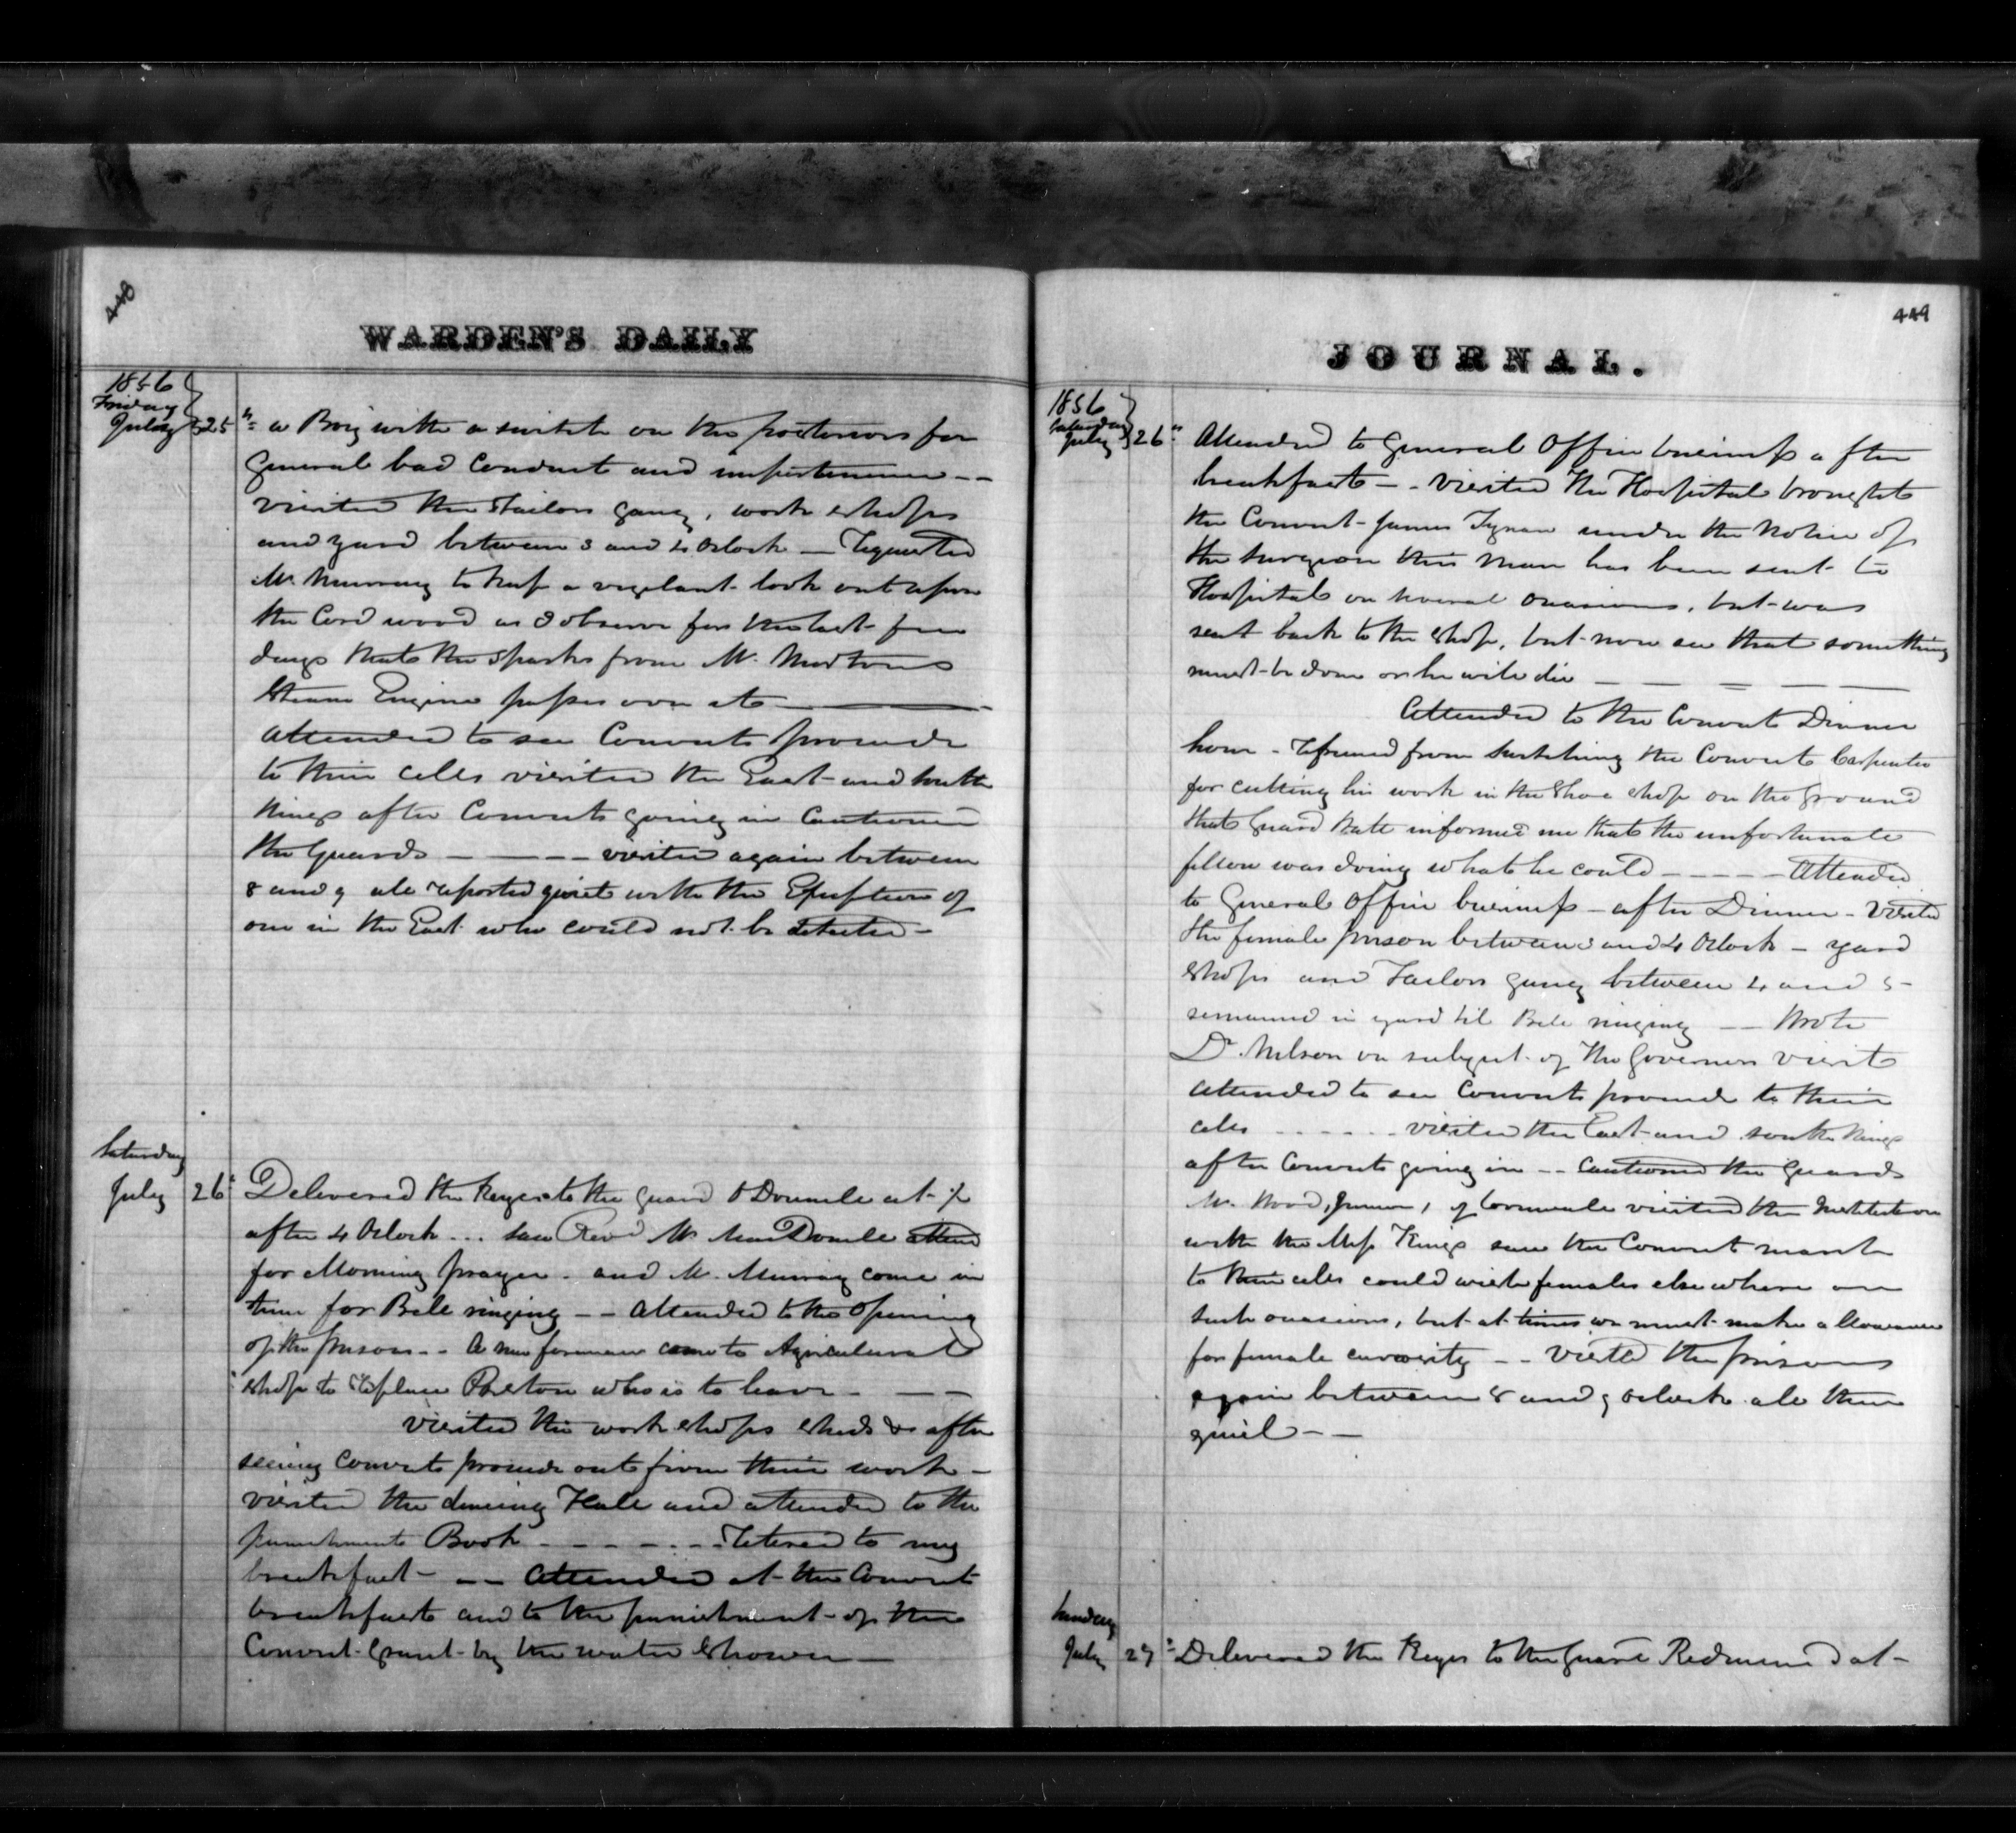 448
WARDEN'S DAILY
1856
Friday
July 25th a Boy with a switch on the posteriors for
General bad Conduct and impertinence --
visited the Tailors gang, work shops
and yard between 3 and 4 Oclock — Requested
Mr Murray to keep a vigilant look out upon
the Cord wood as I observe for the last few
days that the sparks from Mr Mortons
Steam Engine passes over it —
attended to see Convicts proceed
to their cells visited the East and South
Wings after Convicts going in Cautioned
the Guards - - - - visited again between
8 and 9 all reported quiet with the Exception of
one in the East who could not be detected -
Saturday
July 26th Delivered the keys to the Guard O Donnell at ½
after 4 Oclock ... saw Revd Mr MacDonell attend
for Morning prayer. and Mr. Murray come in
time for Bell ringing -- attended to the Opening
of the prison -- A new foreman came to Agricultural
shop to replace who is to leave - - -
visited the work shops sheds &c after
seeing Convicts proceed out from their work -
visited the dining Hall and attended to the
punishment Book - - - - - Retired to my
breakfast - -- attended at the Convict
breakfast and to the punishment of the
Convict Grant by the water Shower —
449
JOURNAL.
1856
Saturday
July 26th Attended to General Office business after
breakfast - - visited the Hospital brought
the Convict James Tynan under the Notice of
the surgeon this man has been sent to
Hospital on several occasions, but was
sent back to the shop, but now see that something
must be done or he will die — — — — —
Attended to the Convict Dinner
hour - refrained from switching the Convict Carpenter
for cutting his work in the Shoe shop on the ground
that Guard informed me that the unfortunate
fellow was doing what he could - - - - - Attended
to General Office business - after Dinner - Visited
the female prison between 3 and 4 Oclock - yard
shops and Tailors gang between 4 and 5 -
remained in yard til Bell ringing -- Wrote
Dr. Nelson on subject of the Governors visit
attended to see Convicts proceed to their
cells - - - - - - visited the East and south Wings
after Convicts going in -- Cautioned the Guards
Mr. Wood, Junior, of Cornwall visited the Institution
with the Miss Kings saw the Convict march
to their cells could wish females elsewhere on
such occasions, but at times we must make allowance
for female curiosity -- Visited the prison
again between 8 and 9 oclock all then
quiet - —
Sunday
July 27th Delivered the keys to the Guard Redmond at -